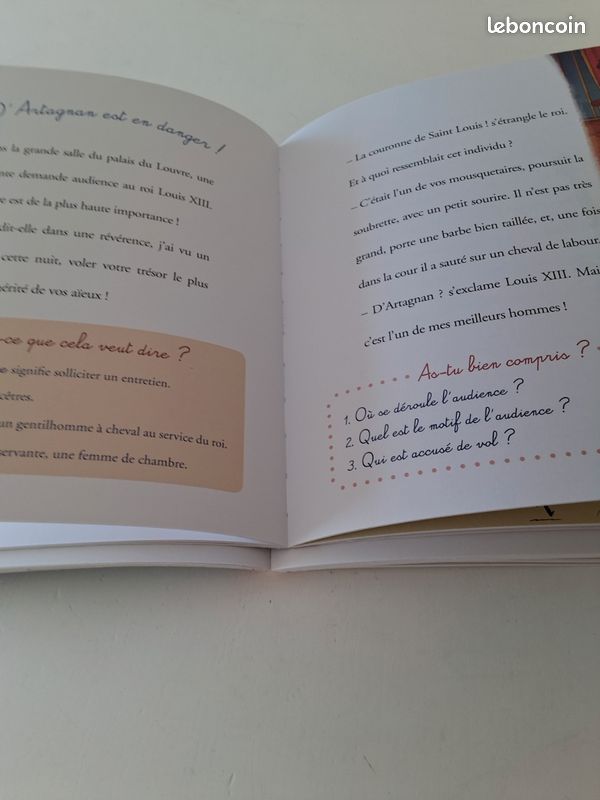 leboncoin
D'Artagnan est en danger !
la grande salle du palais du Louvre, une
demande audience au roi Louis XIII.
est de la plus haute importance !
dit-elle dans une révérence, j'ai vu un
cette nuit, voler votre trésor le plus
de vos aïeux !
-ce que cela veut dire ?
signifie solliciter un entretien.
un gentilhomme à cheval au service du roi.
servante, une femme de chambre.
– La couronne de Saint Louis ! s'étrangle le roi.
Et à quoi ressemblait cet individu ?
– C'était l'un de vos mousquetaires, poursuit la
soubrette, avec un petit sourire. Il n'est pas très
grand, porte une barbe bien taillée, et, une fois
dans la cour il a sauté sur un cheval de labour.
– D'Artagnan ? s'exclame Louis XIII. Mai
c'est l'un de mes meilleurs hommes !
As-tu bien compris ?
1. Où se déroule l'audience ?
2. Quel est le motif de l'audience ?
3. Qui est accusé de vol ?